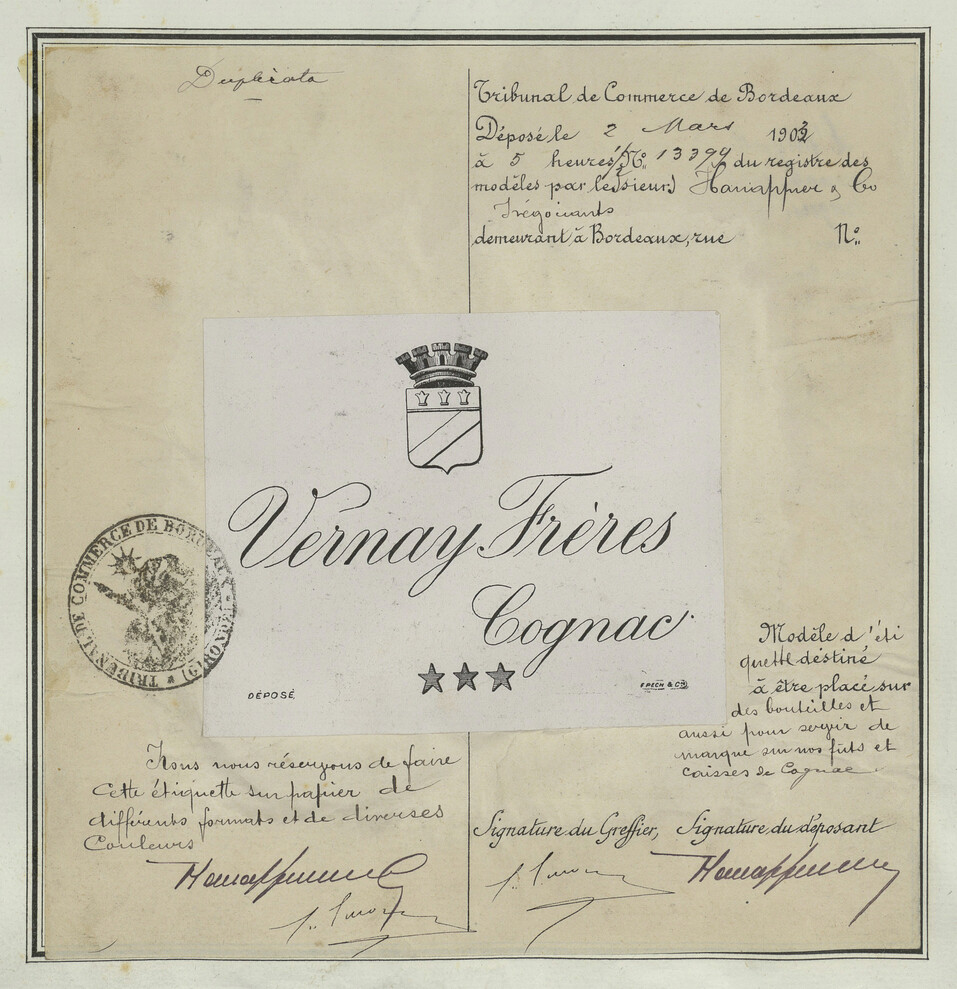 Duplicata
Tribunal de Commerce de Bordeaux
Déposé le 2 Mars 1903
à 5 heures 1/2 No. 13399 du registre des
modèles par le(sieur) Hanappier & Co
Négociants
demeurant à Bordeaux, rue No.
Vernay Frères
Cognac
DÉPOSÉ
F. PECH & Cie
TRIBUNAL DE COMMERCE DE BORDEAUX
Modèle d'éti
quette destiné
à être placé sur
des bouteilles et
aussi pour servir de
marque sur nos fûts et
caisses de Cognac.
Nous nous réservons de faire
Cette étiquette sur papier de
différents formats et de diverses
Couleurs
Signature du Greffier, Signature du déposant